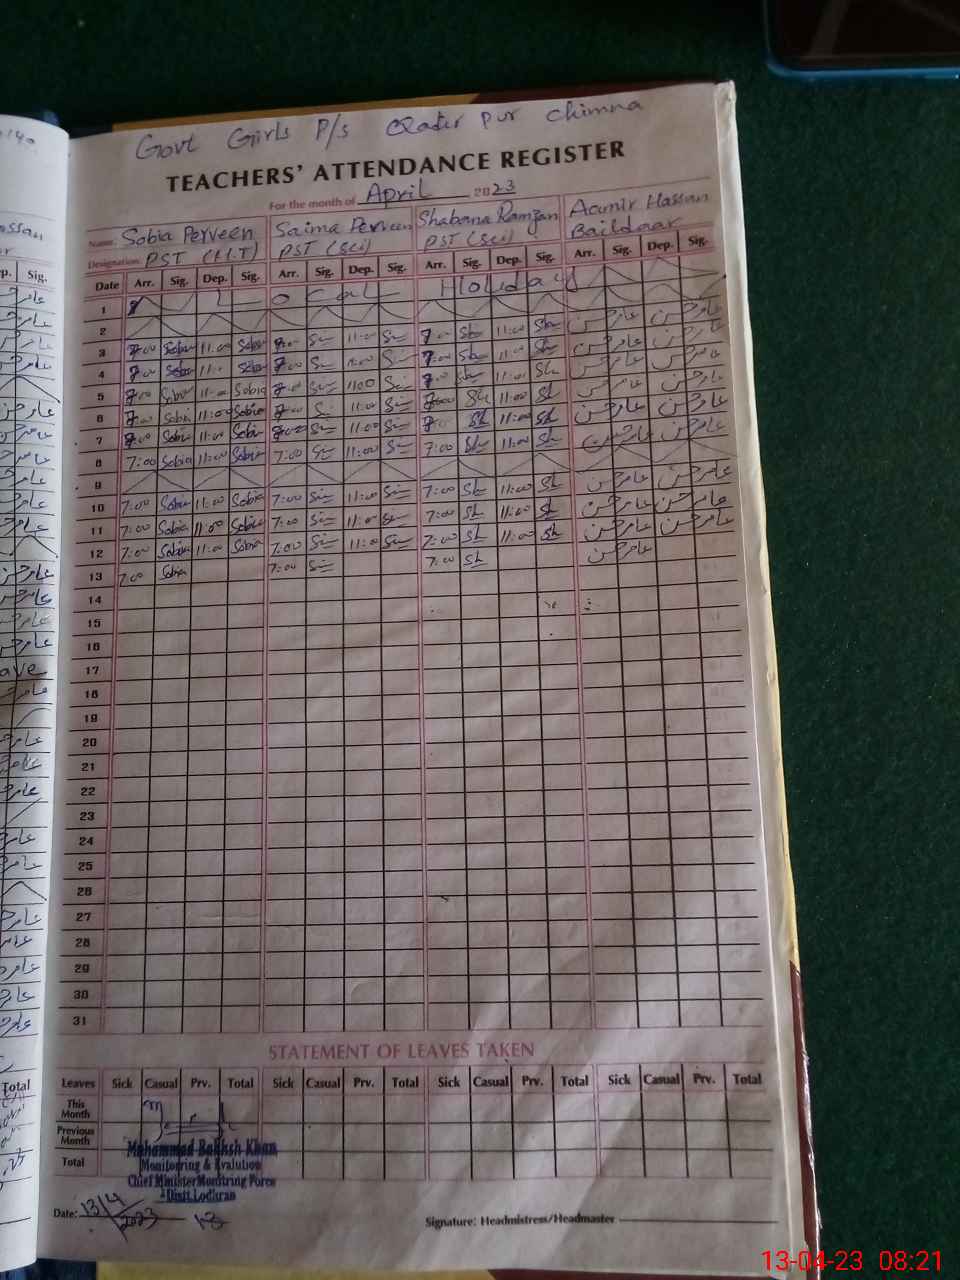 Govt Girls P/s Qadir pur chimna
TEACHERS' ATTENDANCE REGISTER
For the month of April 2023
Name: Sobia Perveen Saima Perveen Shabana Ramzan Aamir Hassan
Designation: PST (M.T) PST (Sci) PST (Sci) Baildaar
Date Arr. Sig. Dep. Sig. Arr. Sig. Dep. Sig. Arr. Sig. Dep. Sig. Arr. Sig. Dep. Sig.
1 Local Holiday
2
3 7:00 Sobia 11:00 Sobia 7:00 11:00 7:00 Sh 11:00 Sh عامر حسن عامر حسن
4 7:00 Sobia 11:00 Sobia 7:00 11:00 7:00 Sh 11:00 Sh عامر حسن عامر حسن
5 7:00 Sobia 11:00 Sobia 7:00 11:00 7:00 Sh 11:00 Sh عامر حسن عامر حسن
6 7:00 Sobia 11:00 Sobia 7:00 11:00 7:00 Sh 11:00 Sh عامر حسن عامر حسن
7 7:00 Sobia 11:00 Sobia 7:00 11:00 7:00 Sh 11:00 Sh عامر حسن عامر حسن
8 7:00 Sobia 11:00 Sobia 7:00 11:00 7:00 Sh 11:00 Sh عامر حسن عامر حسن
9
10 7:00 Sobia 11:00 Sobia 7:00 11:00 7:00 Sh 11:00 Sh عامر حسن عامر حسن
11 7:00 Sobia 11:00 Sobia 7:00 11:00 7:00 Sh 11:00 Sh عامر حسن عامر حسن
12 7:00 Sobia 11:00 Sobia 7:00 11:00 7:00 Sh 11:00 Sh عامر حسن عامر حسن
13 7:00 Sobia 7:00 7:00 Sh عامر حسن
14
15
16
17
18
19
20
21
22
23
24
25
26
27
28
29
30
31
STATEMENT OF LEAVES TAKEN
Leaves Sick Casual Prv. Total Sick Casual Prv. Total Sick Casual Prv. Total Sick Casual Prv. Total
This Month
Previous Month
Total
Muhammad Bakhsh Khan
Monitoring & Evalution
Chief Minister Montring Force
Distt. Lodhran
Date: 13/4/2023
Signature: Headmistress/Headmaster
13-04-23 08:21